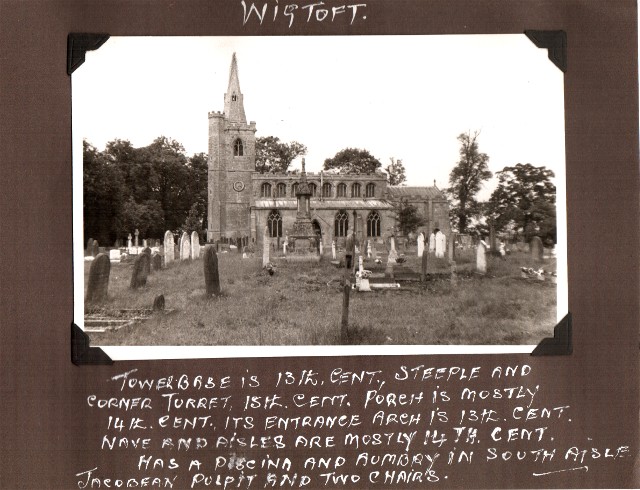 WIGTOFT.
TOWER BASE IS 13th. CENT., STEEPLE AND
CORNER TURRET, 15th. CENT. PORCH IS MOSTLY
14th. CENT., ITS ENTRANCE ARCH IS 13th. CENT.
NAVE AND AISLES ARE MOSTLY 14TH. CENT.
HAS A PISCINA AND AUMBRY IN SOUTH AISLE
JACOBEAN PULPIT AND TWO CHAIRS.